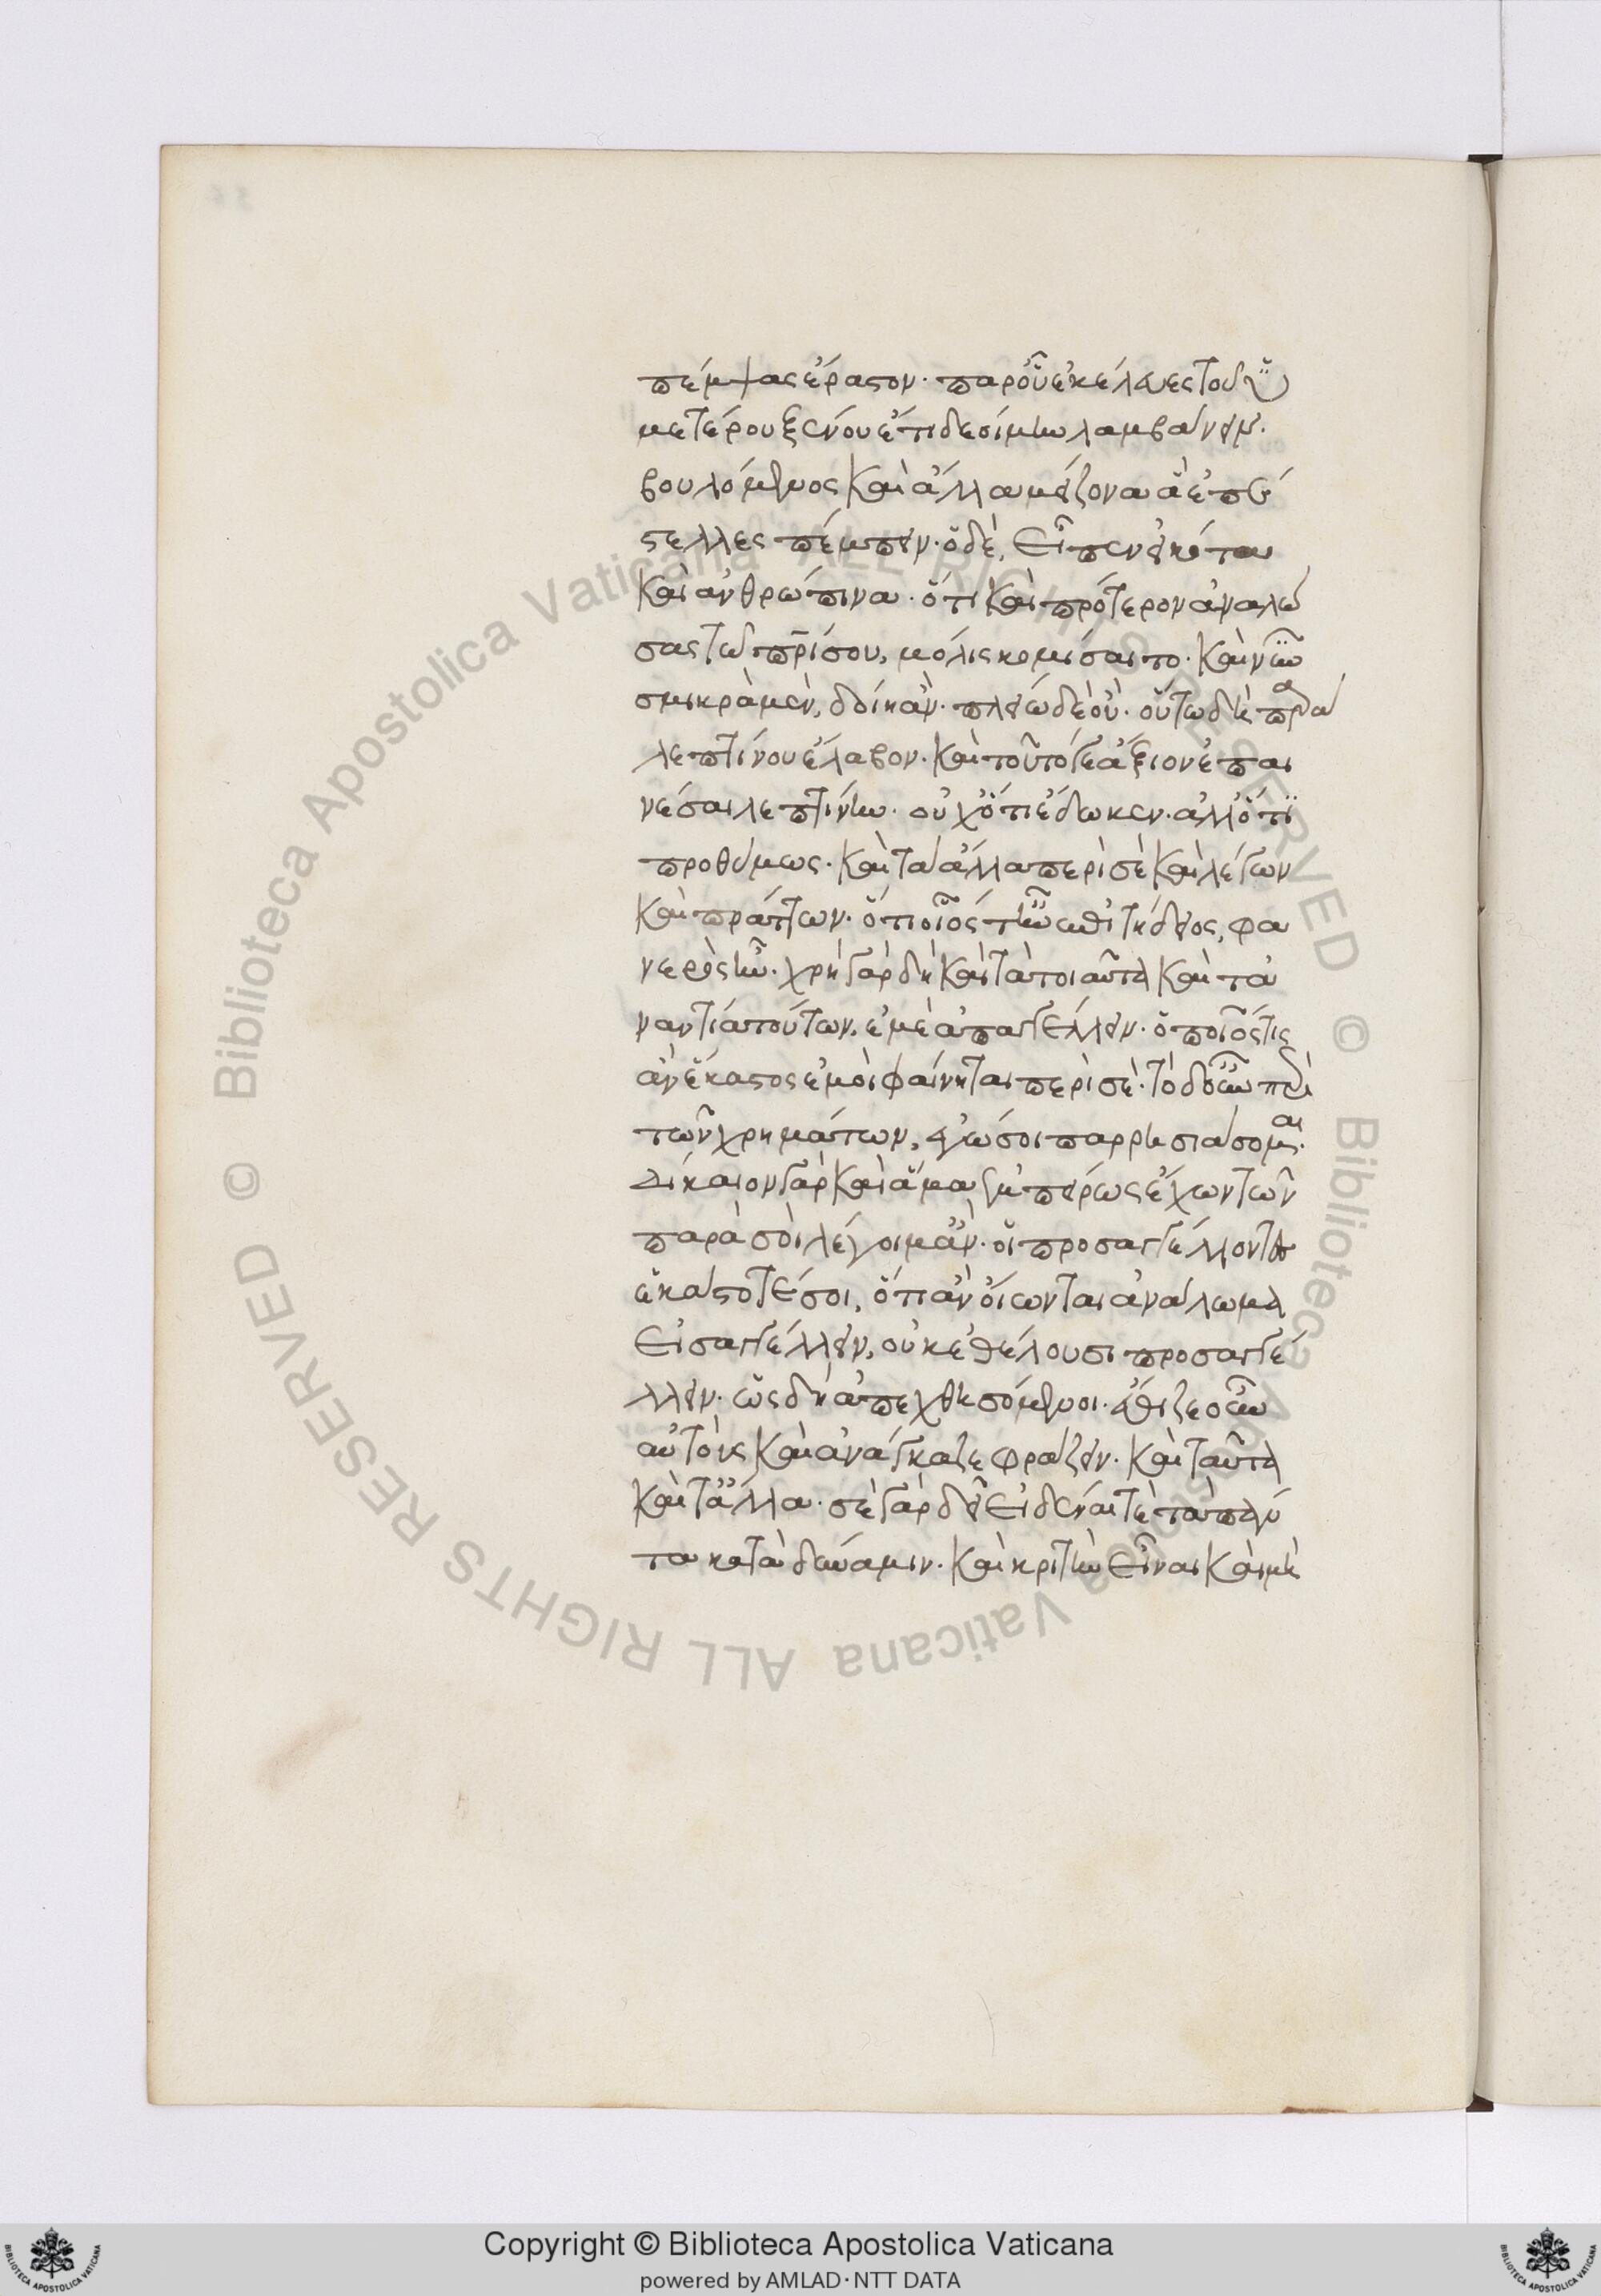 πέμψας ἔραστον. παρ' οὗ ἐκέλευες τοῦ ὑ
μετέρου ξένου ἐπιδεσίμην λαμβάνειν.
βουλόμενος καὶ ἄλλα μείζονα ἃ ἐπέ
στελλες πέμπειν. ὁ δὲ, εἶπεν εἰκότα
καὶ ἀνθρώπινα. ὅτι καὶ πρότερον ἀναλώ
σας τῶ πρί σου, μόλις κομίσαιτο. καὶ νῦν
σμικρὰ μὲν, δοίη ἂν. πλείω δὲ οὔ. οὕτω δὴ παρὰ
λεπτίνου ἔλαβον. καὶ τοῦτό γε ἄξιον ἐπαι
νέσαι λεπτίνην. οὐχ ὅτι ἔδωκεν. ἀλλ' ὅτι
προθύμως. καὶ τὰ ἄλλα περὶ σὲ καὶ λέγων
καὶ πράττων. ὅτι οἷός τ' ἦν ἐπιτήδειος, φα
νερὸς ἦν. χρὴ γὰρ δὴ καὶ τὰ τοιαῦτα καὶ τἀ
ναντία τούτων, ἐμὲ ἀπαγγέλλειν. ὁποῖός τις
ἂν ἕκαστος ἐμοὶ φαίνηται περὶ σὲ. τὸ δ' οὖν περὶ
τῶν χρημάτων, ἐγώ σοι παρρησιάσομαι.
Δίκαιον γὰρ καὶ ἅμα ἐμπείρως ἔχων τῶν
παρὰ σοὶ λέγοιμ' ἄν. οἱ προσαγγέλλοντες
ἑκάστοτέ σοι, ὅτι ἂν οἴωνται ἀνάλωμα
εἰσαγγέλλειν, οὐκ ἐθέλουσι προσαγγέ
λλειν. ὡς δὴ ἀπεχθησόμενοι. ἔθιζε οὖν
αὐτοὺς καὶ ἀνάγκαζε φράζειν. καὶ ταῦτα
καὶ τἄλλα. σὲ γὰρ δεῖ εἰδέναι τὲ τὰ πάν
τα κατὰ δύναμιν. καὶ κριτὴν εἶναι καὶ μὴ
Copyright © Biblioteca Apostolica Vaticana
powered by AMLAD·NTT DATA